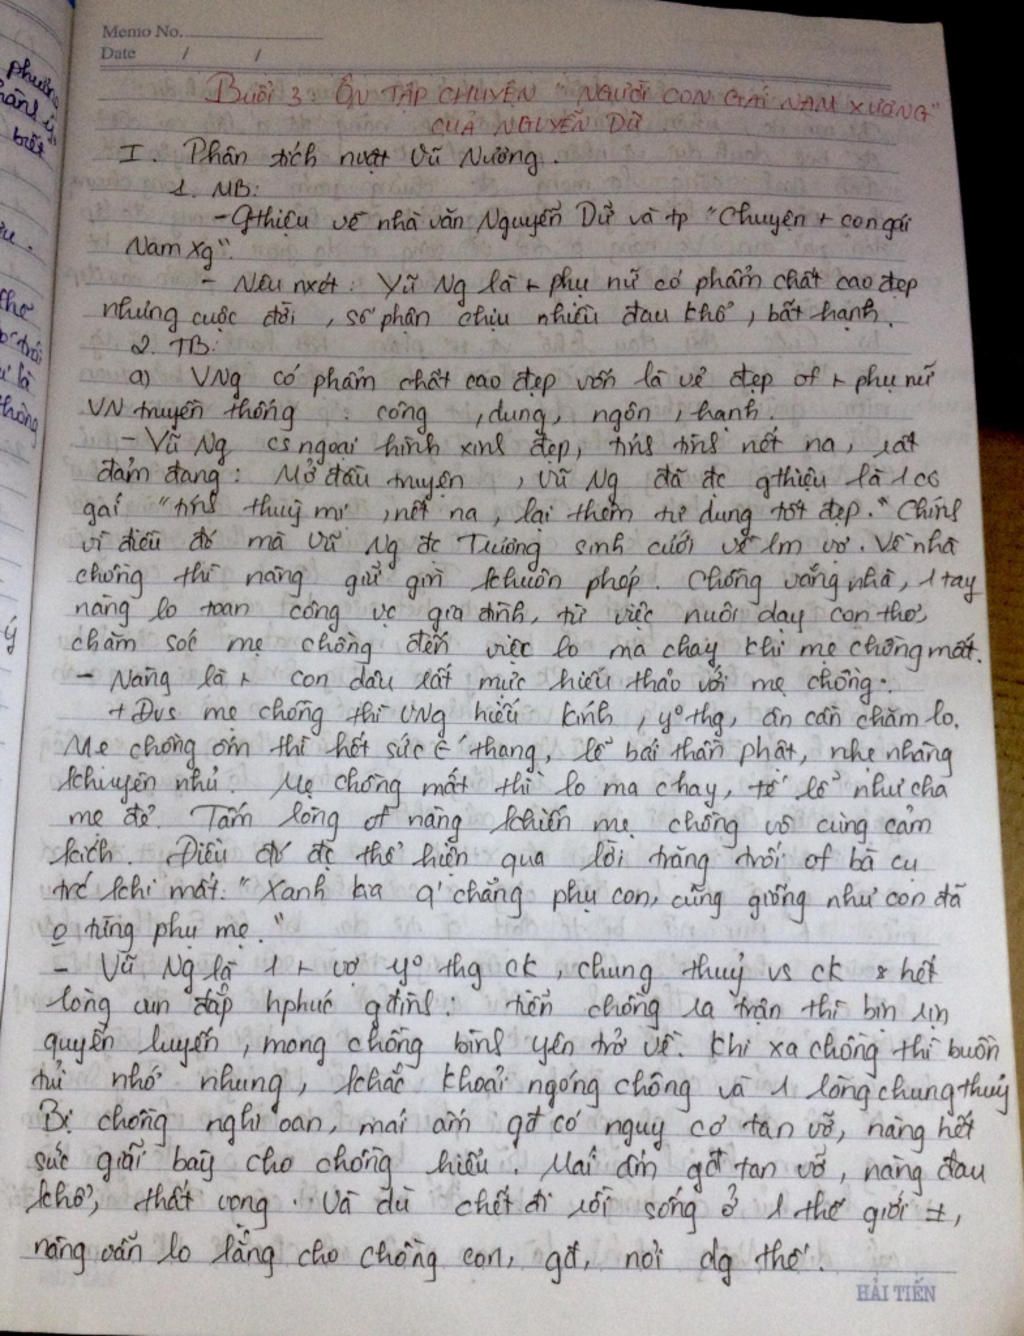 Memo No.
Date / /
BUỔI 3: ÔN TẬP CHUYỆN "NGƯỜI CON GÁI NAM XƯƠNG"
CỦA NGUYỄN DỮ
I. Phân tích nvật Vũ Nương.
1. MB:
- Gthiệu về nhà văn Nguyễn Dữ và tp "Chuyện + con gái
Nam Xg".
- Nêu nxét: Vũ Ng là + phụ nữ có phẩm chất cao đẹp
nhưng cuộc đời, số phận chịu nhiều đau khổ, bất hạnh.
2. TB:
a) VNg có phẩm chất cao đẹp vốn là vẻ đẹp of + phụ nữ
VN truyền thống: công, dung, ngôn, hạnh.
- Vũ Ng cs ngoại hình xins đẹp, tíns tìns nết na, rất
đảm đang: Mở đầu truyện, Vũ Ng đã đc gthiệu là 1 cô
gái "tíns thuỳ mị, nết na, lại thêm tư dung tốt đẹp." Chíns
vì điều đó mà Vũ Ng đc Trương sinh cưới về lm vợ. Về nhà
chồng thì nàng giữ gìn khuôn phép. Chồng vắng nhà, 1 tay
nàng lo toan công vc gia đình, từ việc nuôi dạy con thơ,
chăm sóc mẹ chồng đến việc lo ma chay khi mẹ chồng mất.
- Nàng là + con dâu rất mực hiếu thảo với mẹ chồng.
+ Đvs mẹ chồng thì VNg hiếu kính, yº thg, ân cần chăm lo.
Mẹ chồng ốm thì hết sức thang, lễ bái thần phật, nhẹ nhàng
khuyên nhủ. Mẹ chồng mất thì lo ma chay, tế lễ như cha
mẹ đẻ. Tấm lòng of nàng khiến mẹ chồng vô cùng cảm
kích. Điều đó đc thể hiện qua lời trăng trối of bà cụ
trc khi mất: "Xanh kia q' chẳng phụ con, cũng giống như con đã
o từng phụ mẹ."
- Vũ Ng là 1 + vợ yº thg ck, chung thuỷ vs ck & hết
lòng vun đắp hphúc gđìns: tiễn chồng ra trận thì bịn rịn
quyến luyến, mong chồng bìns yên trở về. Khi xa chồng thì buồn
tủi nhớ nhung, khắc khoải ngóng chồng và 1 lòng chung thuỷ
Bị chồng nghi oan, mái ấm gđ có nguy cơ tan vỡ, nàng hết
sức giãi bày cho chồng hiểu. Mái ấm gđ tan vỡ, nàng đau
khổ, thất vọng. Và dù chết đi rồi sống ở 1 thế giới ≠,
nàng vẫn lo lắng cho chồng con, gđ, nơi dg thế.
HẢI TIẾN